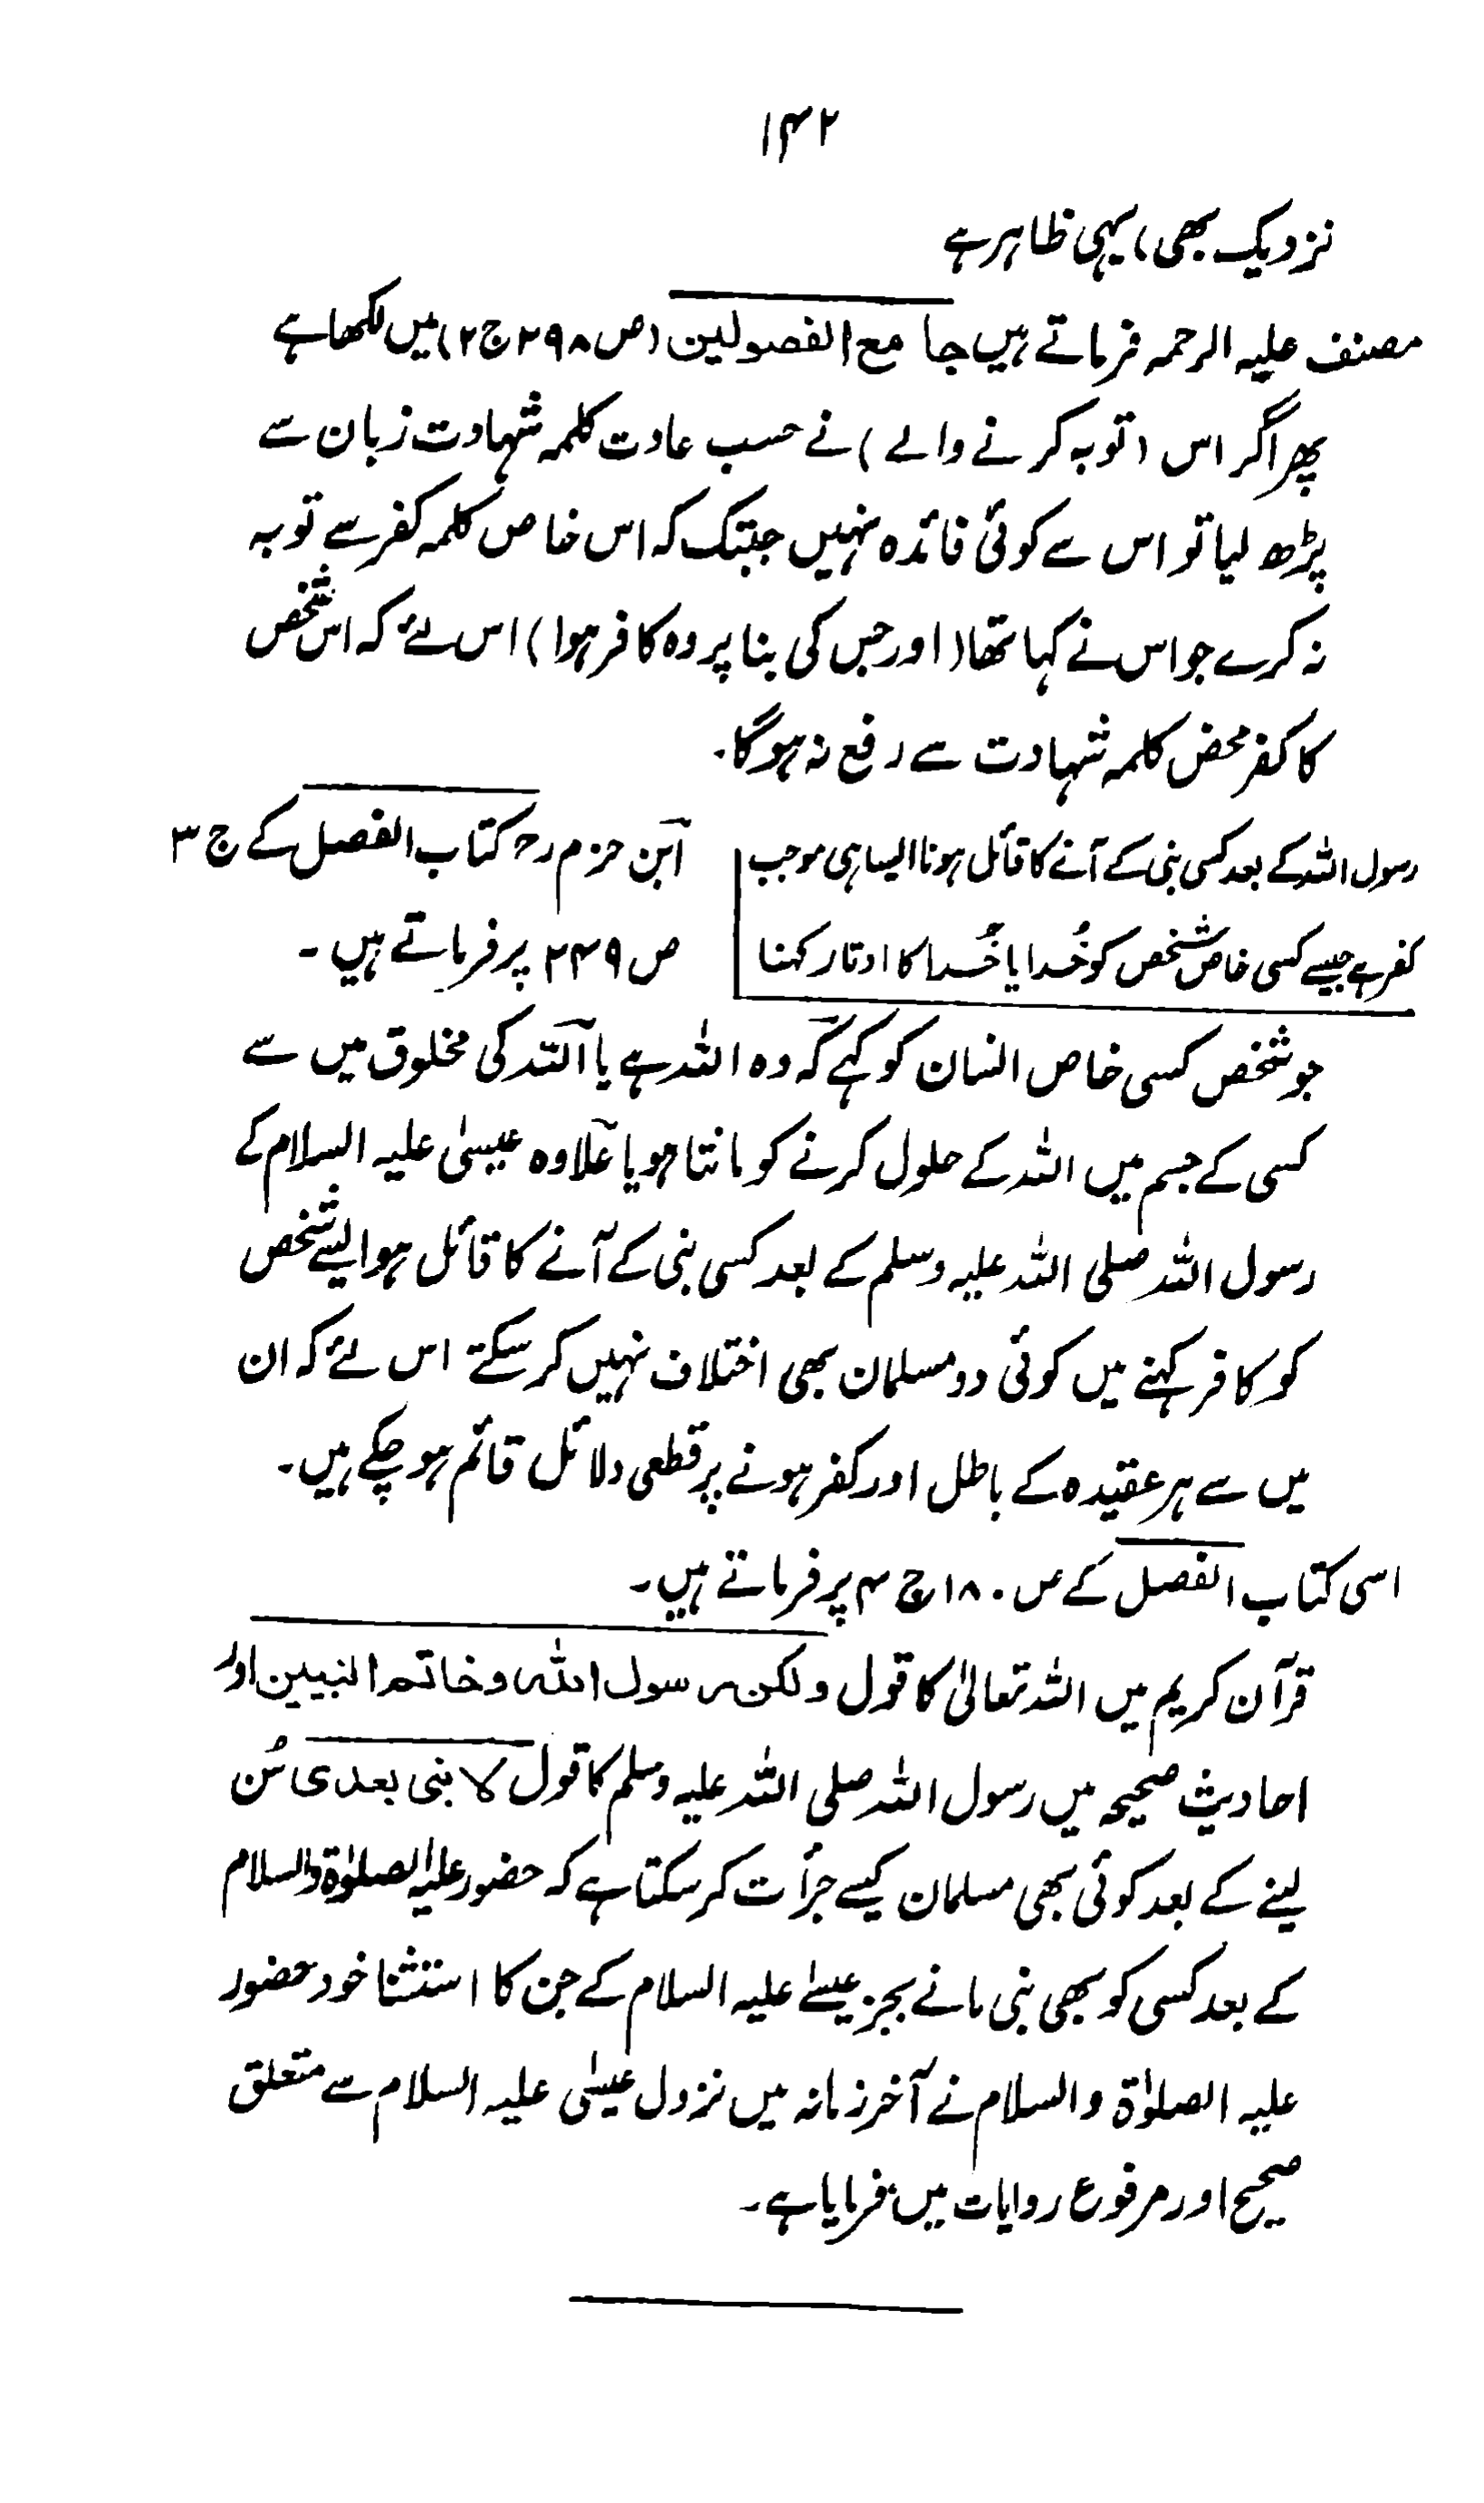 ۱۴۲
نزدیک بھی، یہی ظاہر ہے
مصنف علیہ الرحمہ فرماتے ہیں جامع الفصولین (ص ۲۹۸ ج ۲) میں لکھا ہے
پھر اگر اس (توبہ کرنے والے) نے حسب عادت کلمہ شہادت زبان سے
پڑھ لیا تو اس سے کوئی فائدہ نہیں جبتک کہ اس خاص کلمہ کفر سے توبہ
نہ کرے جو اس نے کہا تھا (اور جس کی بنا پر وہ کافر ہوا) اس لئے کہ اس شخص
کا کفر محض کلمہ شہادت سے رفع نہ ہوگا۔
رسول اللہ کے بعد کسی نبی کے آنے کا قائل ہونا ایسا ہی موجب
کفر ہے جیسے کسی خاص شخص کو خُدا یا خُدا کا اوتار کہنا
ابن حزم رح کتاب الفصل کے ج ۳
ص ۲۴۹ پر فرماتے ہیں ۔
جو شخص کسی خاص انسان کو کہے کہ وہ اللہ ہے یا اللہ کی مخلوق میں سے
کسی کے جسم میں اللہ کے حلول کرنے کو مانتا ہو یا علاوہ عیسیٰ علیہ السلام کے
رسول اللہ صلی اللہ علیہ وسلم کے بعد کسی نبی کے آنے کا قائل ہو ایسے شخص
کو کافر کہنے میں کوئی دو مسلمان بھی اختلاف نہیں کر سکتے اس لئے کہ ان
میں سے ہر عقیدہ کے باطل اور کفر ہونے پر قطعی دلائل قائم ہو چکے ہیں۔
اسی کتاب الفصل کے ص ۱۸۰ ج ۴ پر فرماتے ہیں۔
قرآن کریم میں اللہ تعالیٰ کا قول ولکن رسول اللہ وخاتم النبیین اور
احادیث صحیحہ میں رسول اللہ صلی اللہ علیہ وسلم کا قول لا نبی بعدی سُن
لینے کے بعد کوئی بھی مسلمان کیسے جرأت کر سکتا ہے کہ حضور علیہ الصلوٰۃ والسلام
کے بعد کسی کو بھی نبی مانے بجز عیسےٰ علیہ السلام کے جن کا استثنا خود حضور
علیہ الصلوٰۃ والسلام نے آخر زمانہ میں نزول عیسیٰ علیہ السلام سے متعلق
صحیح اور مرفوع روایات میں فرمایا ہے۔